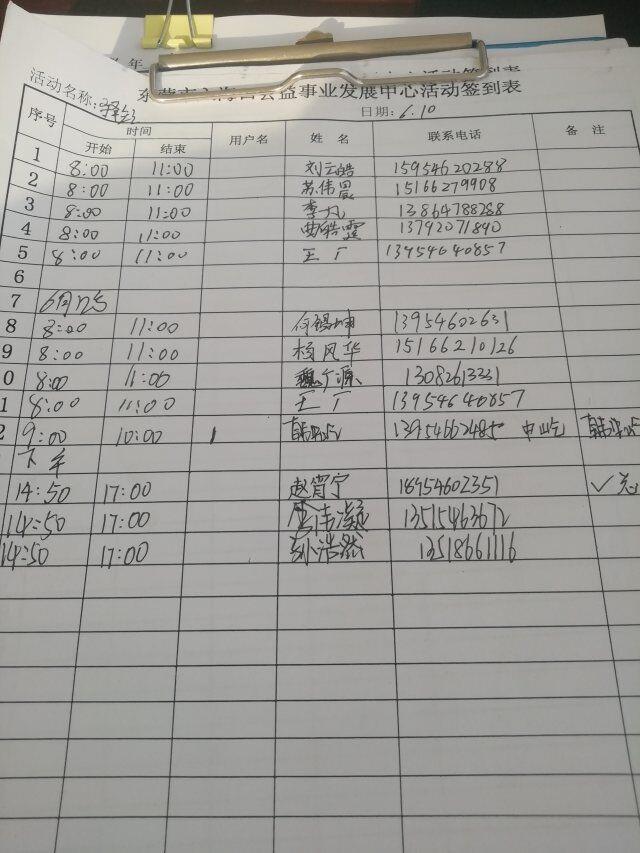 年
活动签到表
东营市 公益事业发展中心活动签到表
活动名称: 日期: 6.10
序号 时间 开始 结束 用户名 姓名 联系电话 备注
1 8:00 11:00 刘云皓 15954620288
2 8:00 11:00 苏伟晨 15166279908
3 8:00 11:00 李凡 13864788288
4 8:00 11:00 曲皓霆 13792071840
5 8:00 11:00 王广 13954640857
6
7 6月12号
8 8:00 11:00 何锡坤 13954602631
9 8:00 11:00 杨风华 15166210126
0 8:00 11:00 魏广源 13082613231
1 8:00 11:00 王广 13954640857
2 9:00 10:00 1 13954662485
下午
14:50 17:00 赵宵宁 18954602351 ✓
14:50 17:00 13515463672
14:50 17:00 孙浩然 13518661116